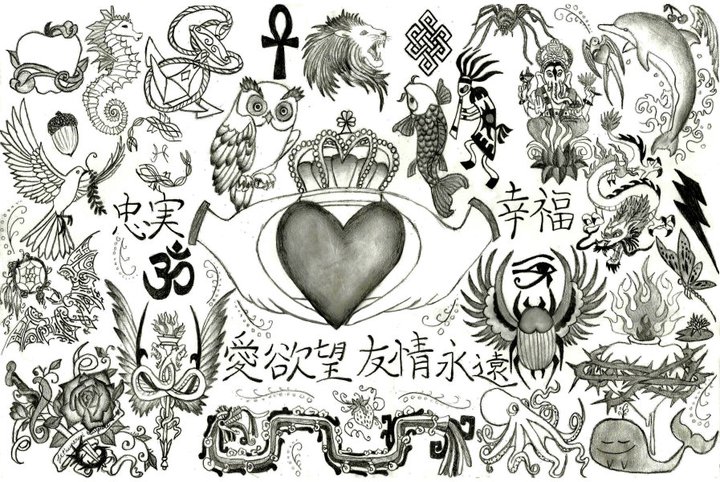 忠実
幸福
ॐ
愛欲望 友情永遠